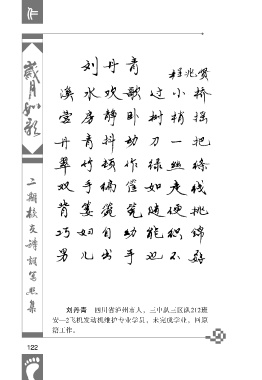 刘丹青
程兆贤
溪水欢歌过小桥
营房静卧树梢摇
丹青抖动刀一把
翠竹顿作绿丝绦
双手编筐如走线
背篓筑瓮随便挑
巧妇自幼能织锦
男儿出手也不孬
刘丹青 四川省泸州市人,三中队三区队212班
安—2飞机发动机维护专业学员,未完成学业,回原
籍工作。
岁月如歌
二期校友诗词写照集
122